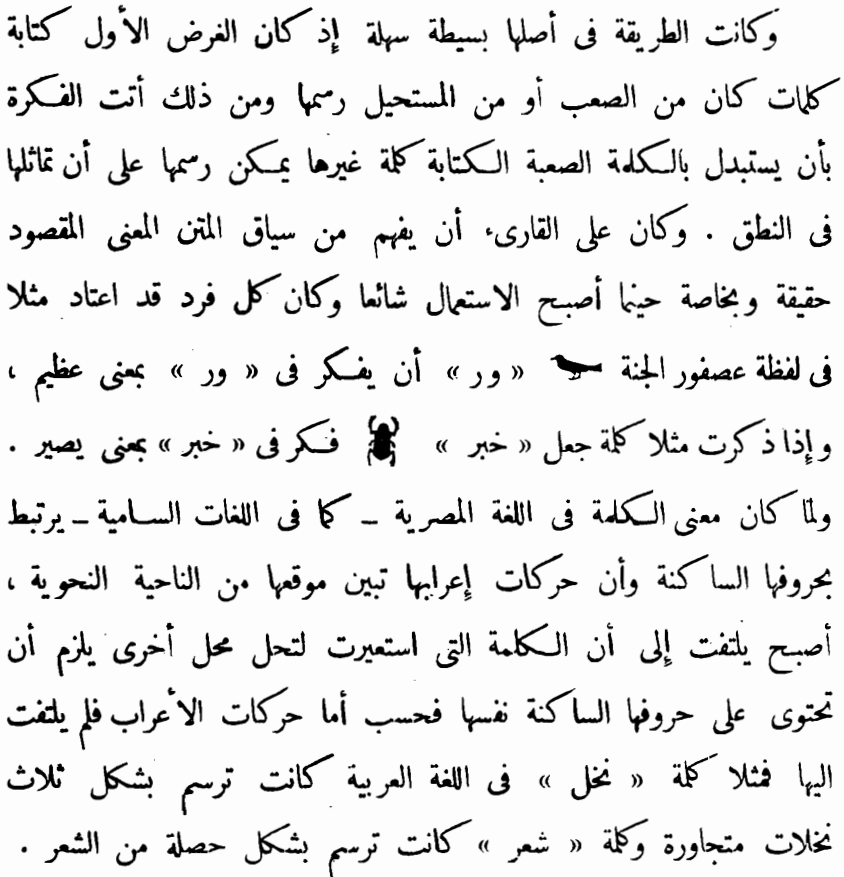 وكانت الطريقة فى أصلها بسيطة سهلة إذ كان الغرض الأول كتابة
كلمات كان من الصعب أو من المستحيل رسمها ومن ذلك أتت الفكرة
بأن يستبدل بالكلمة الصعبة الكتابة كلمة غيرها يمكن رسمها على أن تماثلها
فى النطق . وكان على القارىء أن يفهم من سياق المتن المعنى المقصود
حقيقة وبخاصة حينما أصبح الاستعمال شائعا وكان كل فرد قد اعتاد مثلا
فى لفظة عصفور الجنة « ور » أن يفكر فى « ور » بمعنى عظيم ،
وإذا ذكرت مثلا كلمة جعل « خبر » فكر فى « خبر » بمعنى يصير .
ولما كان معنى الكلمة فى اللغة المصرية ــ كما فى اللغات السامية ــ يرتبط
بحروفها الساكنة وأن حركات إعرابها تبين موقعها من الناحية النحوية ،
أصبح يلتفت إلى أن الكلمة التى استعيرت لتحل محل أخرى يلزم أن
تحتوى على حروفها الساكنة نفسها فحسب أما حركات الأعراب فلم يلتفت
اليها فمثلا كلمة « نخل » فى اللغة العربية كانت ترسم بشكل ثلاث
نخلات متجاورة وكلمة « شعر » كانت ترسم بشكل حصلة من الشعر .